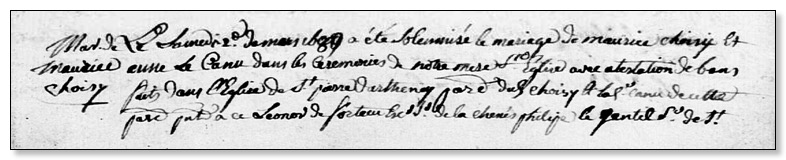 Mar. de Le Samedi 2e de mars 1689 a été solennisé le mariage de maurice choisy Et
Maurice anne Le Canu dans les ceremonies de notre mere Ste Eglise avec atestation de bans
Choisy faits dans l'Eglise de St pierre Darthenay paroe dud Choisy Et la d canu de cette
paroe pnts a ce Leonor de fortecu Esc sr de la chenés philipe le gentil sr de St